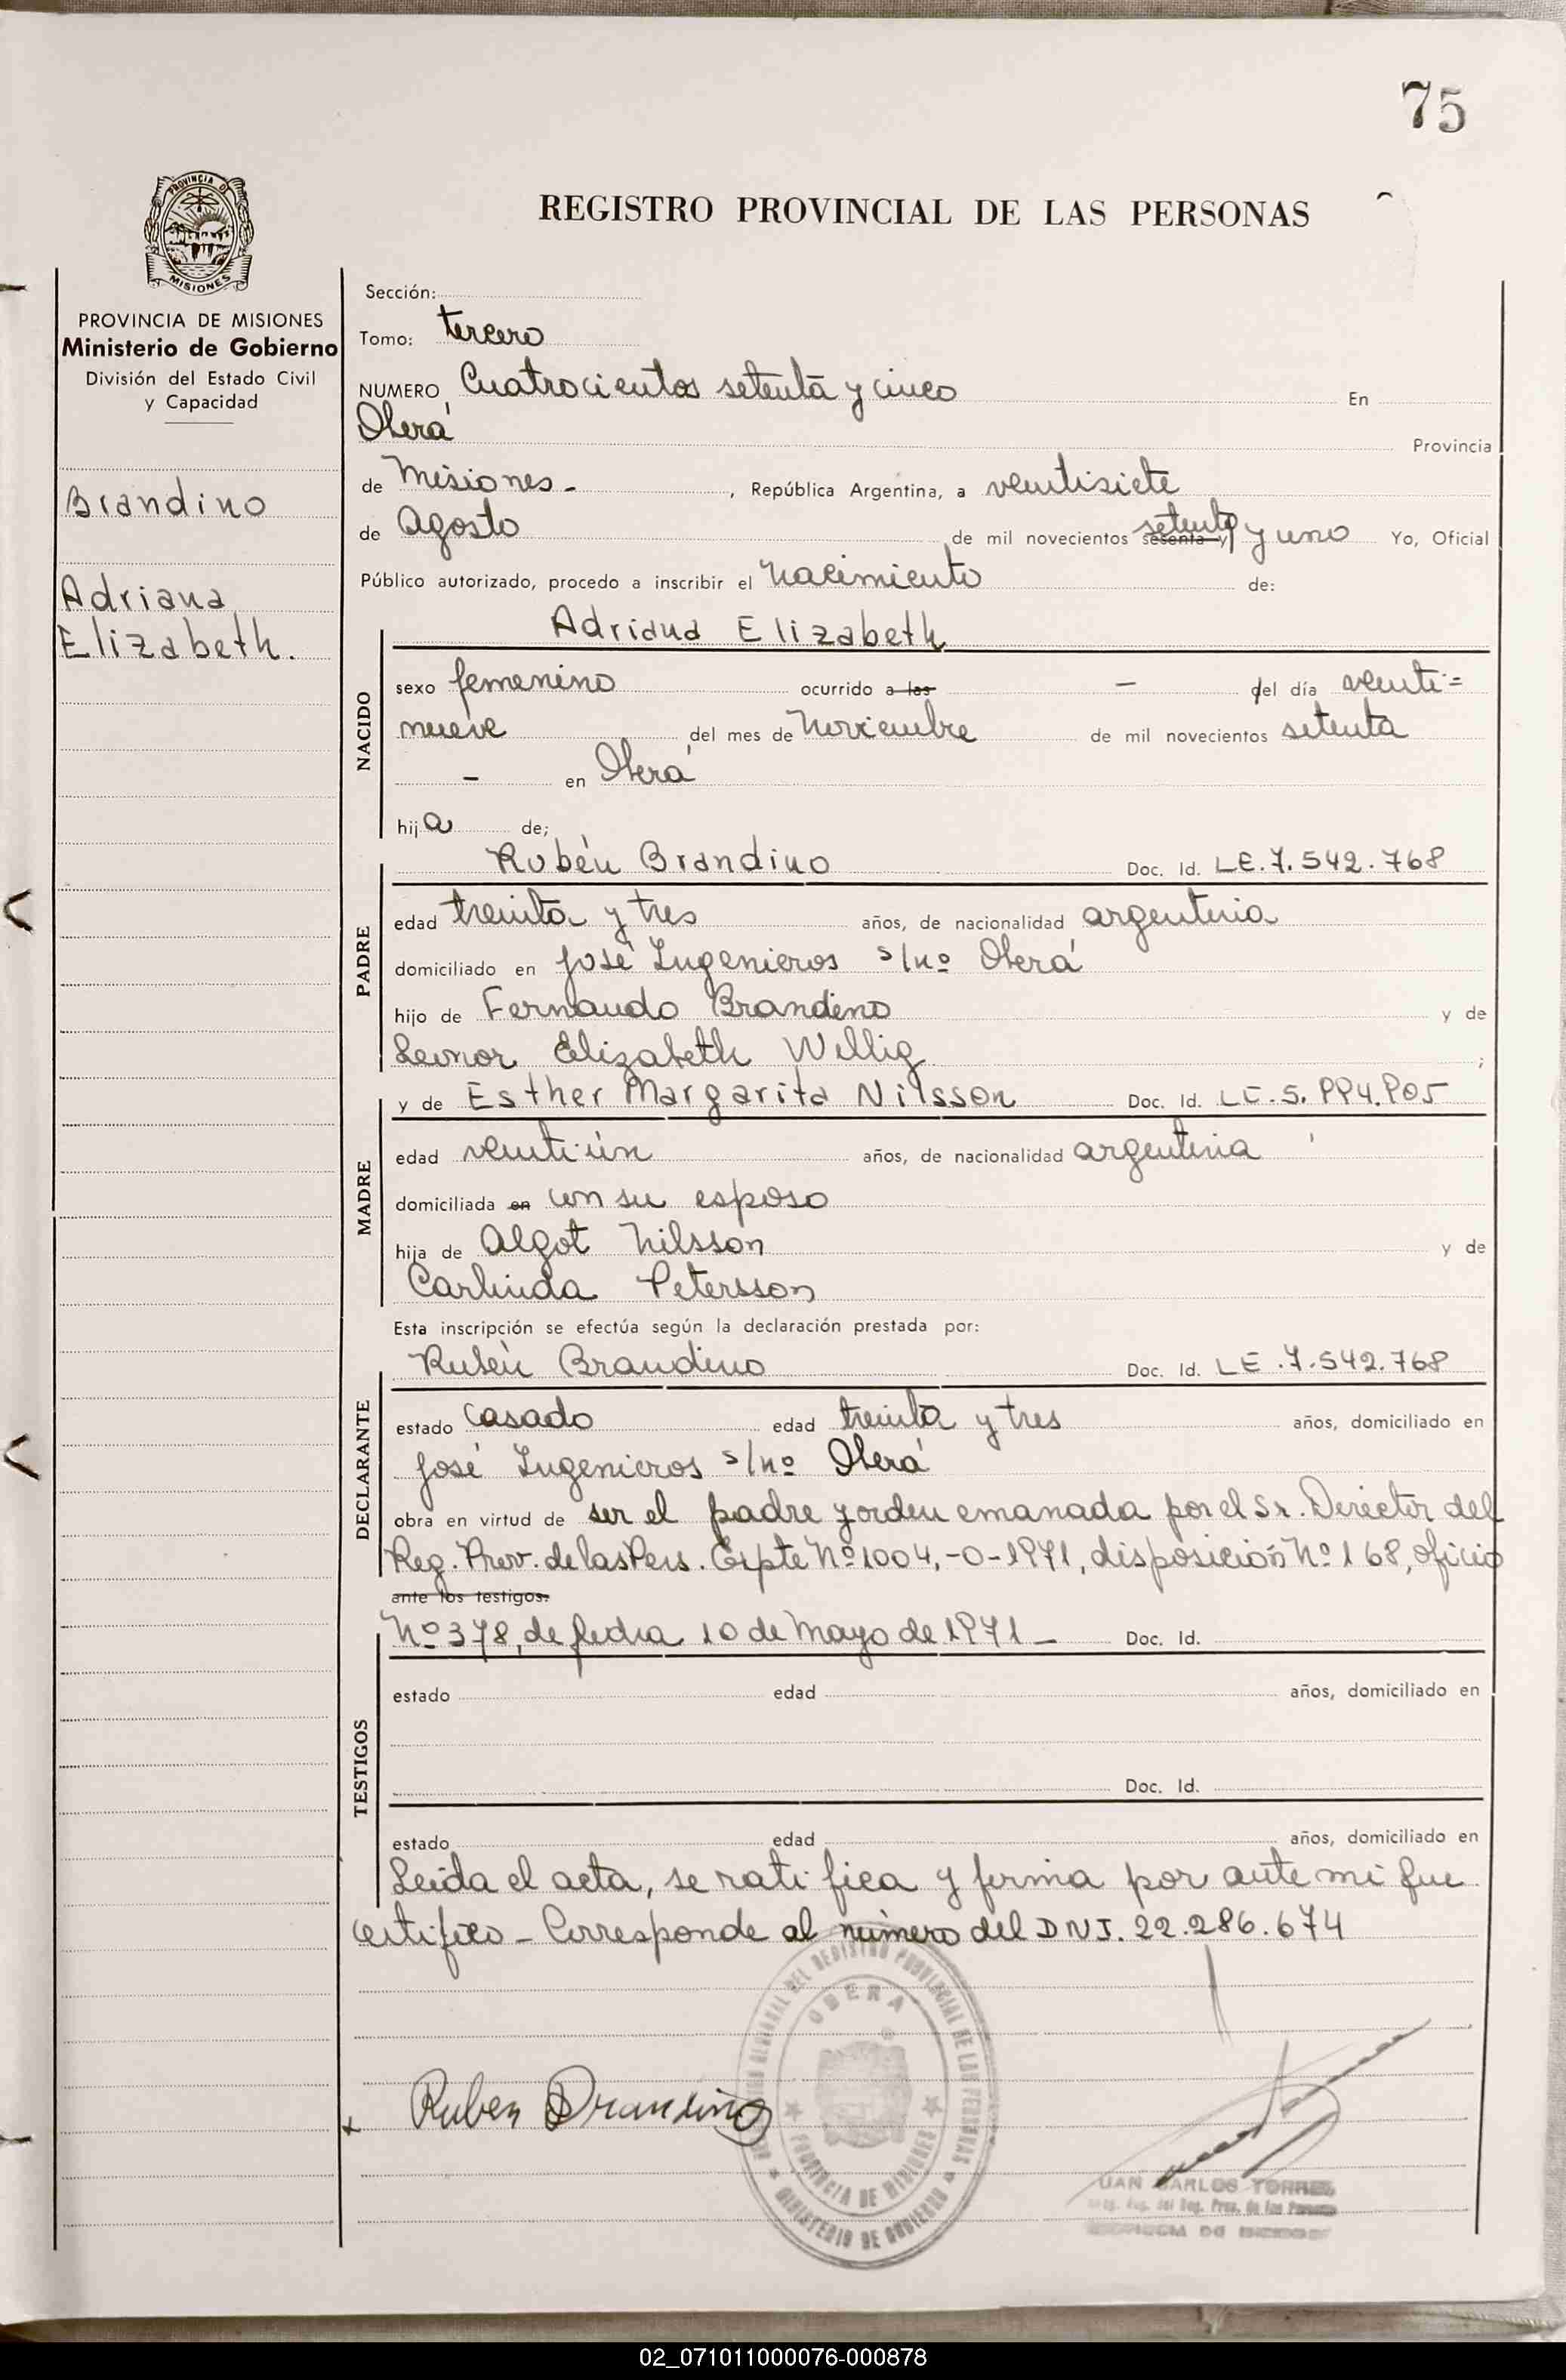 75
REGISTRO PROVINCIAL DE LAS PERSONAS
PROVINCIA DE
MISIONES
PROVINCIA DE MISIONES
Ministerio de Gobierno
División del Estado Civil
y Capacidad
Brandino
Adriana
Elizabeth.
Sección:
Tomo: tercero
NUMERO Cuatrocientos setenta y cinco En
Oberá Provincia
de Misiones - , República Argentina, a ventisiete
de Agosto de mil novecientos sesenta y setenta y uno Yo, Oficial
Público autorizado, procedo a inscribir el Nacimiento de:
Adriana Elizabeth
NACIDO
sexo femenino ocurrido a las - del día venti=
nueve del mes de Noviembre de mil novecientos setenta
- en Oberá
hija de;
Rubén Brandino Doc. Id. LE.7.542.768
PADRE
edad treinta y tres años, de nacionalidad argentina
domiciliado en José Ingenieros s/nº Oberá
hijo de Fernando Brandino y de
Leonor Elizabeth Willig ;
y de Esther Margarita Nilsson Doc. Id. LC.5.994.905
MADRE
edad ventiún años, de nacionalidad argentina
domiciliada en con su esposo
hija de Algot Nilsson y de
Carlinda Petersson
Esta inscripción se efectúa según la declaración prestada por:
Rubén Brandino Doc. Id. LE.7.542.768
DECLARANTE
estado Casado edad treinta y tres años, domiciliado en
José Ingenieros s/nº Oberá
obra en virtud de ser el padre y orden emanada por el Sr. Director del
Reg. Prov. de las Pers. Expte Nº 1004,-O-1971, disposición Nº 168, oficio
ante los testigos:
Nº 378, de fecha 10 de Mayo de 1971 - Doc. Id.
TESTIGOS
estado edad años, domiciliado en
Doc. Id.
estado edad años, domiciliado en
Leida el acta, se ratifica y firma por ante mi que
certifico - Corresponde al número del DNI. 22.286.674
Ruben Brandino
GENERAL DEL REGISTRO PROVINCIAL DE LAS PERSONAS
OBERA
PROVINCIA DE MISIONES
MINISTERIO DE GOBIERNO
JUAN CARLOS TORRES
del Reg. Prov. de las Personas
02_071011000076-000878